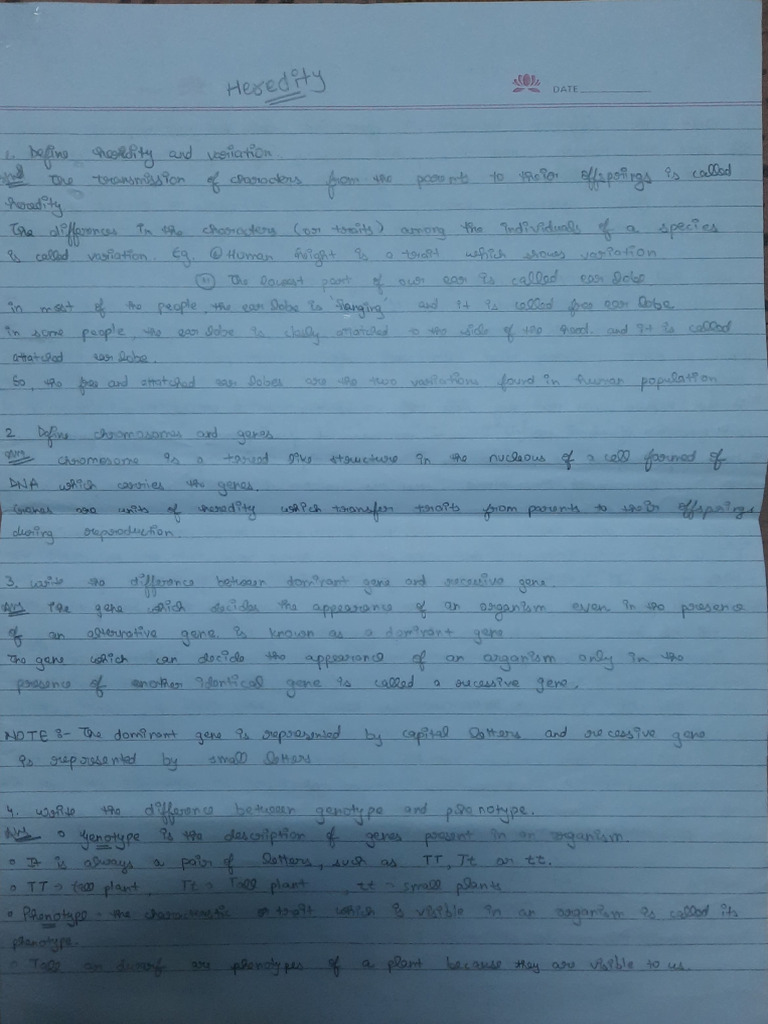 Heredity
DATE
1. Define heredity and variation.
Ans The transmission of characters from the parents to their offsprings is called
heredity
The differences in the characters (or traits) among the individuals of a species
is called variation. Eg. (i) Human height is a trait which shows variation
(ii) The lowest part of our ear is called ear lobe
in most of the people, the ear lobe is 'hanging' and it is called free ear lobe.
in some people, the ear lobe is attatched to the side of the head. and it is called
attatched ear lobe.
So, the free and attatched ear lobes are the two variations found in human population
2. Define chromosomes and genes
Ans chromosome is a like structure in the nucleous of a cell formed of
DNA which carries the genes.
Genes are units of heredity which transfer traits from parents to their offsprings
during reproduction.
3. write the difference between dominant gene and recessive gene.
Ans The gene which decides the appearance of an organism even in the presence
of an alternative gene is known as a dominant gene
The gene which can decide the appearance of an organism only in the
presence of another identical gene is called a recessive gene.
NOTE :- The dominant gene is represented by capital letters and recessive gene
is represented by small letters
4. write the difference between genotype and phenotype.
Ans • Genotype is the description of genes present in an organism.
• It is always a pair of letters, such as TT, Tt or tt.
• TT → tall plant, Tt → Tall plant, tt → small plants
• Phenotype - the characteristic or trait which is visible in an organism is called its
phenotype.
• Tall or dwarf are phenotypes of a plant because they are visible to us.